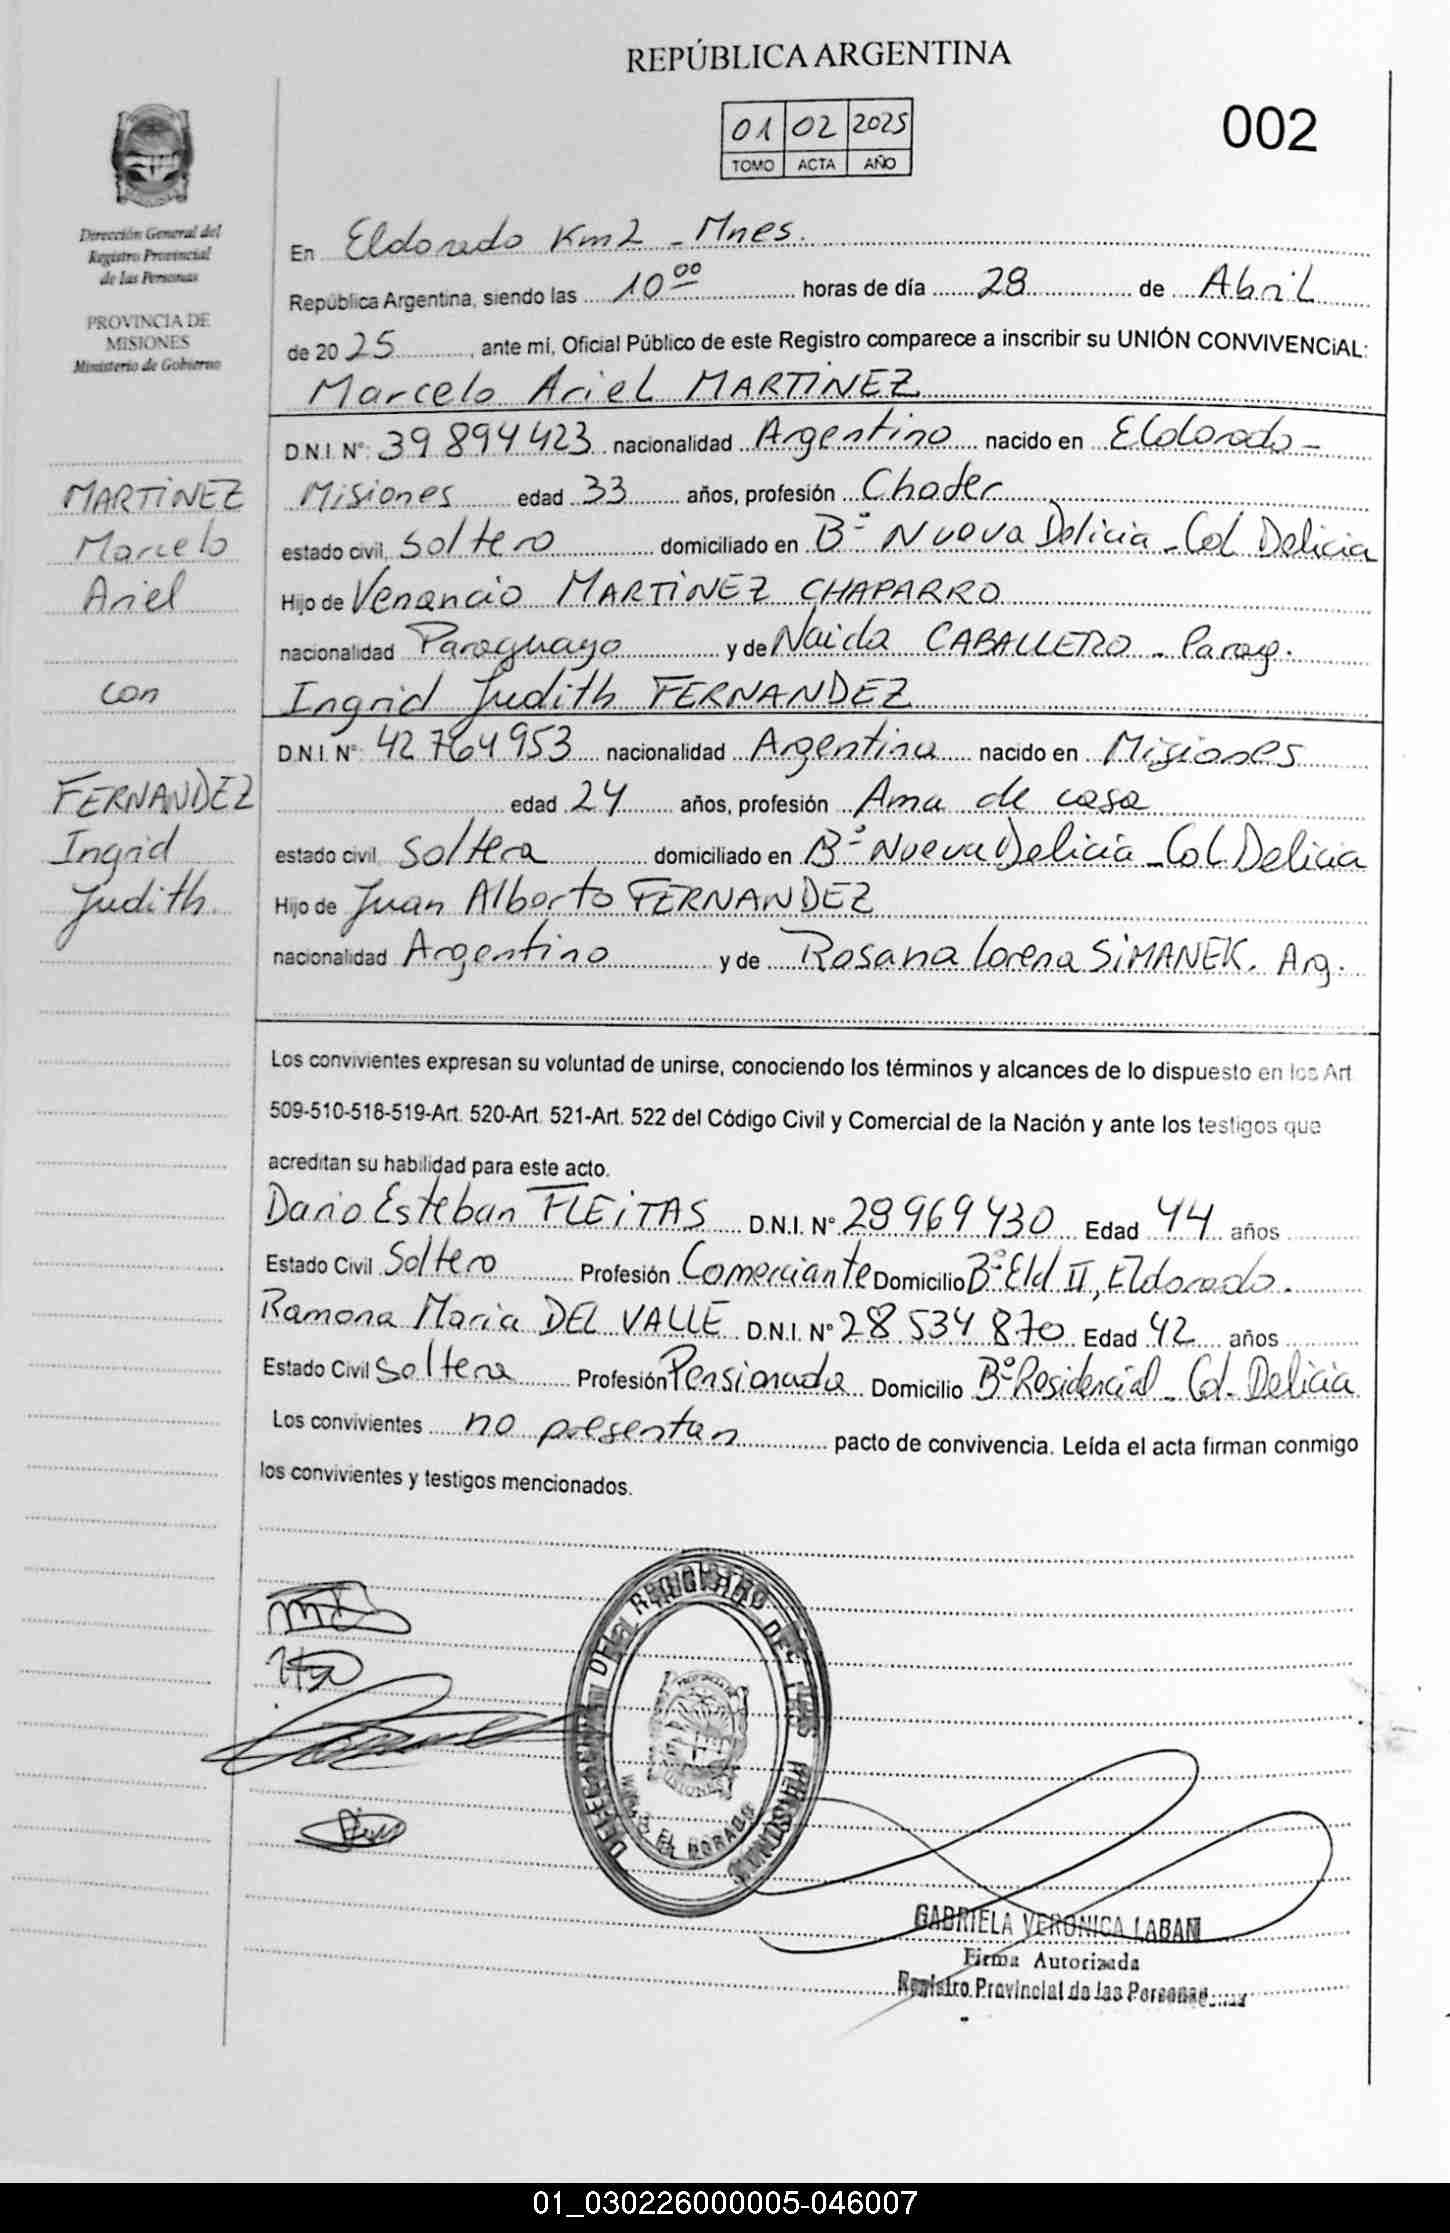 REPÚBLICA ARGENTINA
01 02 2025
TOMO ACTA AÑO
002
Dirección General del
Registro Provincial
de las Personas
PROVINCIA DE
MISIONES
Ministerio de Gobierno
En Eldorado Km2 - Mnes.
República Argentina, siendo las 10 00 horas de día 28 de Abril
de 20 25, ante mí, Oficial Público de este Registro comparece a inscribir su UNIÓN CONVIVENCIAL:
Marcelo Ariel MARTINEZ
D.N.I. N°: 39 894 423 nacionalidad Argentino nacido en Eldorado -
Misiones edad 33 años, profesión Chofer
estado civil Soltero domiciliado en B° Nueva Delicia - Col. Delicia
Hijo de Venancio MARTINEZ CHAPARRO
nacionalidad Paraguayo y de Naida CABALLERO - Parag.
Ingrid Judith FERNANDEZ
D.N.I. N°: 42 764 953 nacionalidad Argentina nacido en Misiones
edad 24 años, profesión Ama de casa
estado civil Soltera domiciliado en B° Nueva Delicia - Col. Delicia
Hijo de Juan Alberto FERNANDEZ
nacionalidad Argentino y de Rosana Lorena SIMANEK. Arg.
MARTINEZ
Marcelo
Ariel
con
FERNANDEZ
Ingrid
Judith
Los convivientes expresan su voluntad de unirse, conociendo los términos y alcances de lo dispuesto en los Art.
509-510-518-519-Art. 520-Art. 521-Art. 522 del Código Civil y Comercial de la Nación y ante los testigos que
acreditan su habilidad para este acto.
Dario Esteban FLEITAS D.N.I. N° 28 969 430 Edad 44 años
Estado Civil Soltero Profesión Comerciante Domicilio B° Eld II, Eldorado.
Ramona Maria DEL VALLE D.N.I. N° 28 534 870 Edad 42 años
Estado Civil Soltera Profesión Pensionada Domicilio B° Residencial - Col. Delicia
Los convivientes no presentan pacto de convivencia. Leída el acta firman conmigo
los convivientes y testigos mencionados.
DELEGACION DEL REGISTRO DE LAS PERSONAS
PROVINCIA DE
MISIONES
EL DORADO
GABRIELA VERONICA LABAN
Firma Autorizada
Registro Provincial de las Personas
01_030226000005-046007